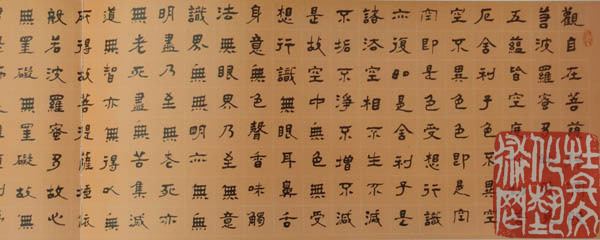 觀自在菩薩
若波羅蜜多
五蘊皆空度
厄舍利子色不異空
空不異色色即是空
空即是色受想行識
亦復如是舍利子是
諸法空相不生不滅
不垢不淨不增不減
是故空中無色無受
想行識無眼耳鼻舌
身意無色聲香味觸
法無眼界乃至無意
識界無無明亦無無
明盡乃至無老死亦
無老死盡無苦集滅
道無智亦無得以無
所得故菩提薩埵依
般若波羅蜜多故心
無罣礙無罣礙故無